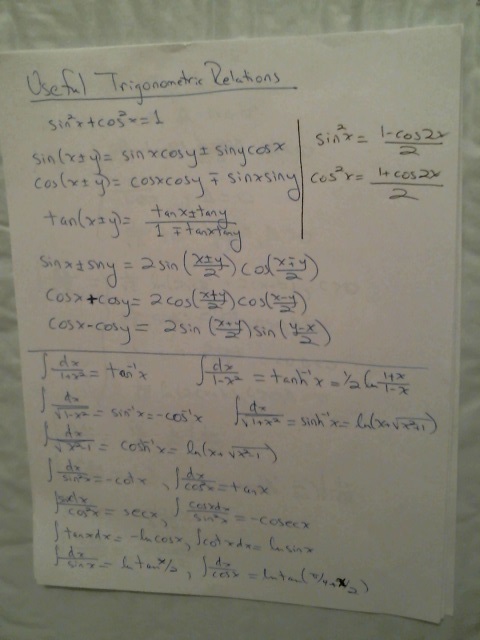 Useful Trigonometric Relations
sin²x+cos²x=1
sin(x±y)= sinxcosy ± sinycosx
cos(x±y)= cosxcosy ∓ sinxsiny
tan(x±y)= (tanx±tany)/(1∓tanxtany)
sin²x= (1-cos2x)/2
cos²x= (1+cos2x)/2
sinx±sny = 2sin((x±y)/2)cos((x∓y)/2)
cosx+cosy= 2cos((x+y)/2)cos((x-y)/2)
cosx-cosy= 2sin((x+y)/2)sin((y-x)/2)
∫dx/(1+x²)= tan⁻¹x ∫dx/(1-x²) = tanh⁻¹x = 1/2 ln (1+x)/(1-x)
∫dx/√(1-x²) = sin⁻¹x=-cos⁻¹x ∫dx/√(1+x²) = sinh⁻¹x= ln(x+√(x²+1))
∫dx/√(x²-1) = cosh⁻¹x = ln(x+√(x²-1))
∫dx/sin²x =-cotx, ∫dx/cos²x = tanx
∫sinxdx/cos²x = secx, ∫cosxdx/sin²x = -cosecx
∫tanxdx= -lncosx, ∫cotxdx= lnsinx
∫dx/sinx = lntan x/2, ∫dx/cosx = lntan(π/4+x/2)